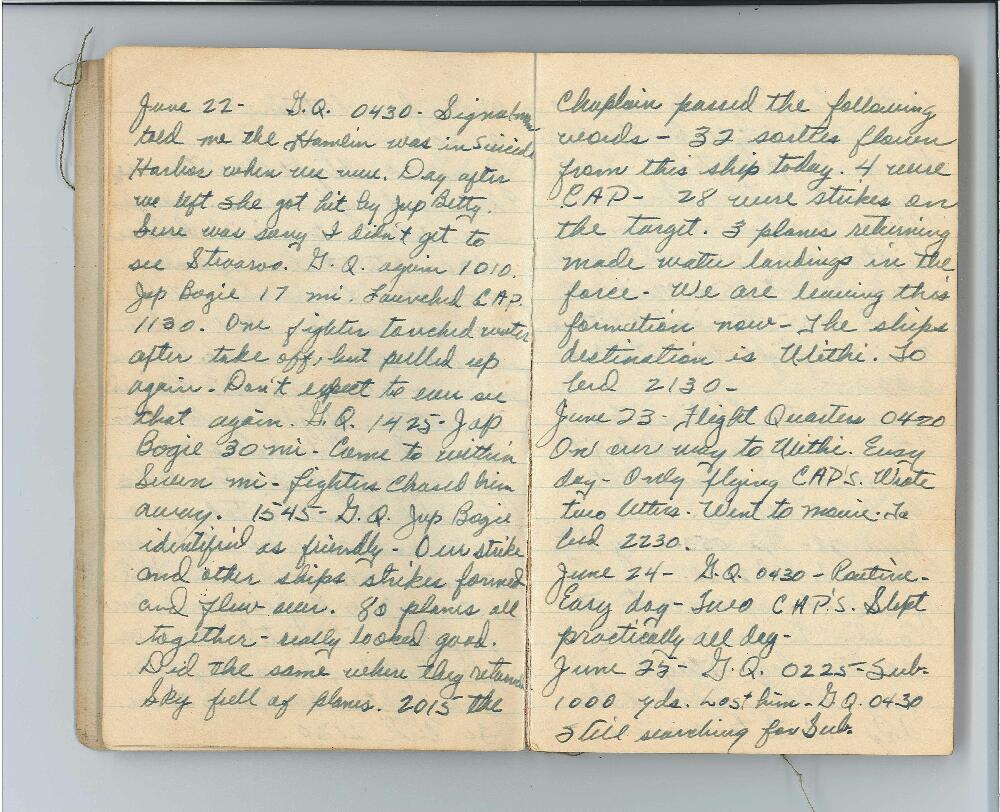 June 22- G.Q. 0430- Signalman
told me the Hamlin was in Suicide
Harbor when we were. Day after
we left she got hit by Jap Betty.
Sure was sorry I didn't get to
see G.Q. again 1010.
Jap Bogie 17 mi. Launched CAP.
1130. One fighter touched water
after take off, but pulled up
again. Don't expect to ever see
that again. G.Q. 1425- Jap
Bogie 30 mi- Came to within
Seven mi- fighters chased him
away. 1545- G.Q. Jap Bogie
identified as friendly- Our strike
and other ships strikes formed
and flew over. 80 planes all
together- really looked good.
Did the same when they returned
Sky full of planes. 2015 the
Chaplain passed the following
words- 32 sorties flown
from this ship today. 4 were
CAP- 28 were strikes on
the target. 3 planes returning
made water landings in the
force- We are leaving this
formation now- The ships
destination is Ulithi. To
bed 2130-
June 23- Flight Quarters 0420
On our way to Ulithi. Easy
day- Only flying CAP'S. Wrote
two letters. Went to movie. To
bed 2230.
June 24- G.Q. 0430- Routine-
Easy day- Two CAP'S. Slept
practically all day-
June 25- G.Q. 0225- Sub-
1000 yds. Lost him- G.Q. 0430
Still searching for Sub.